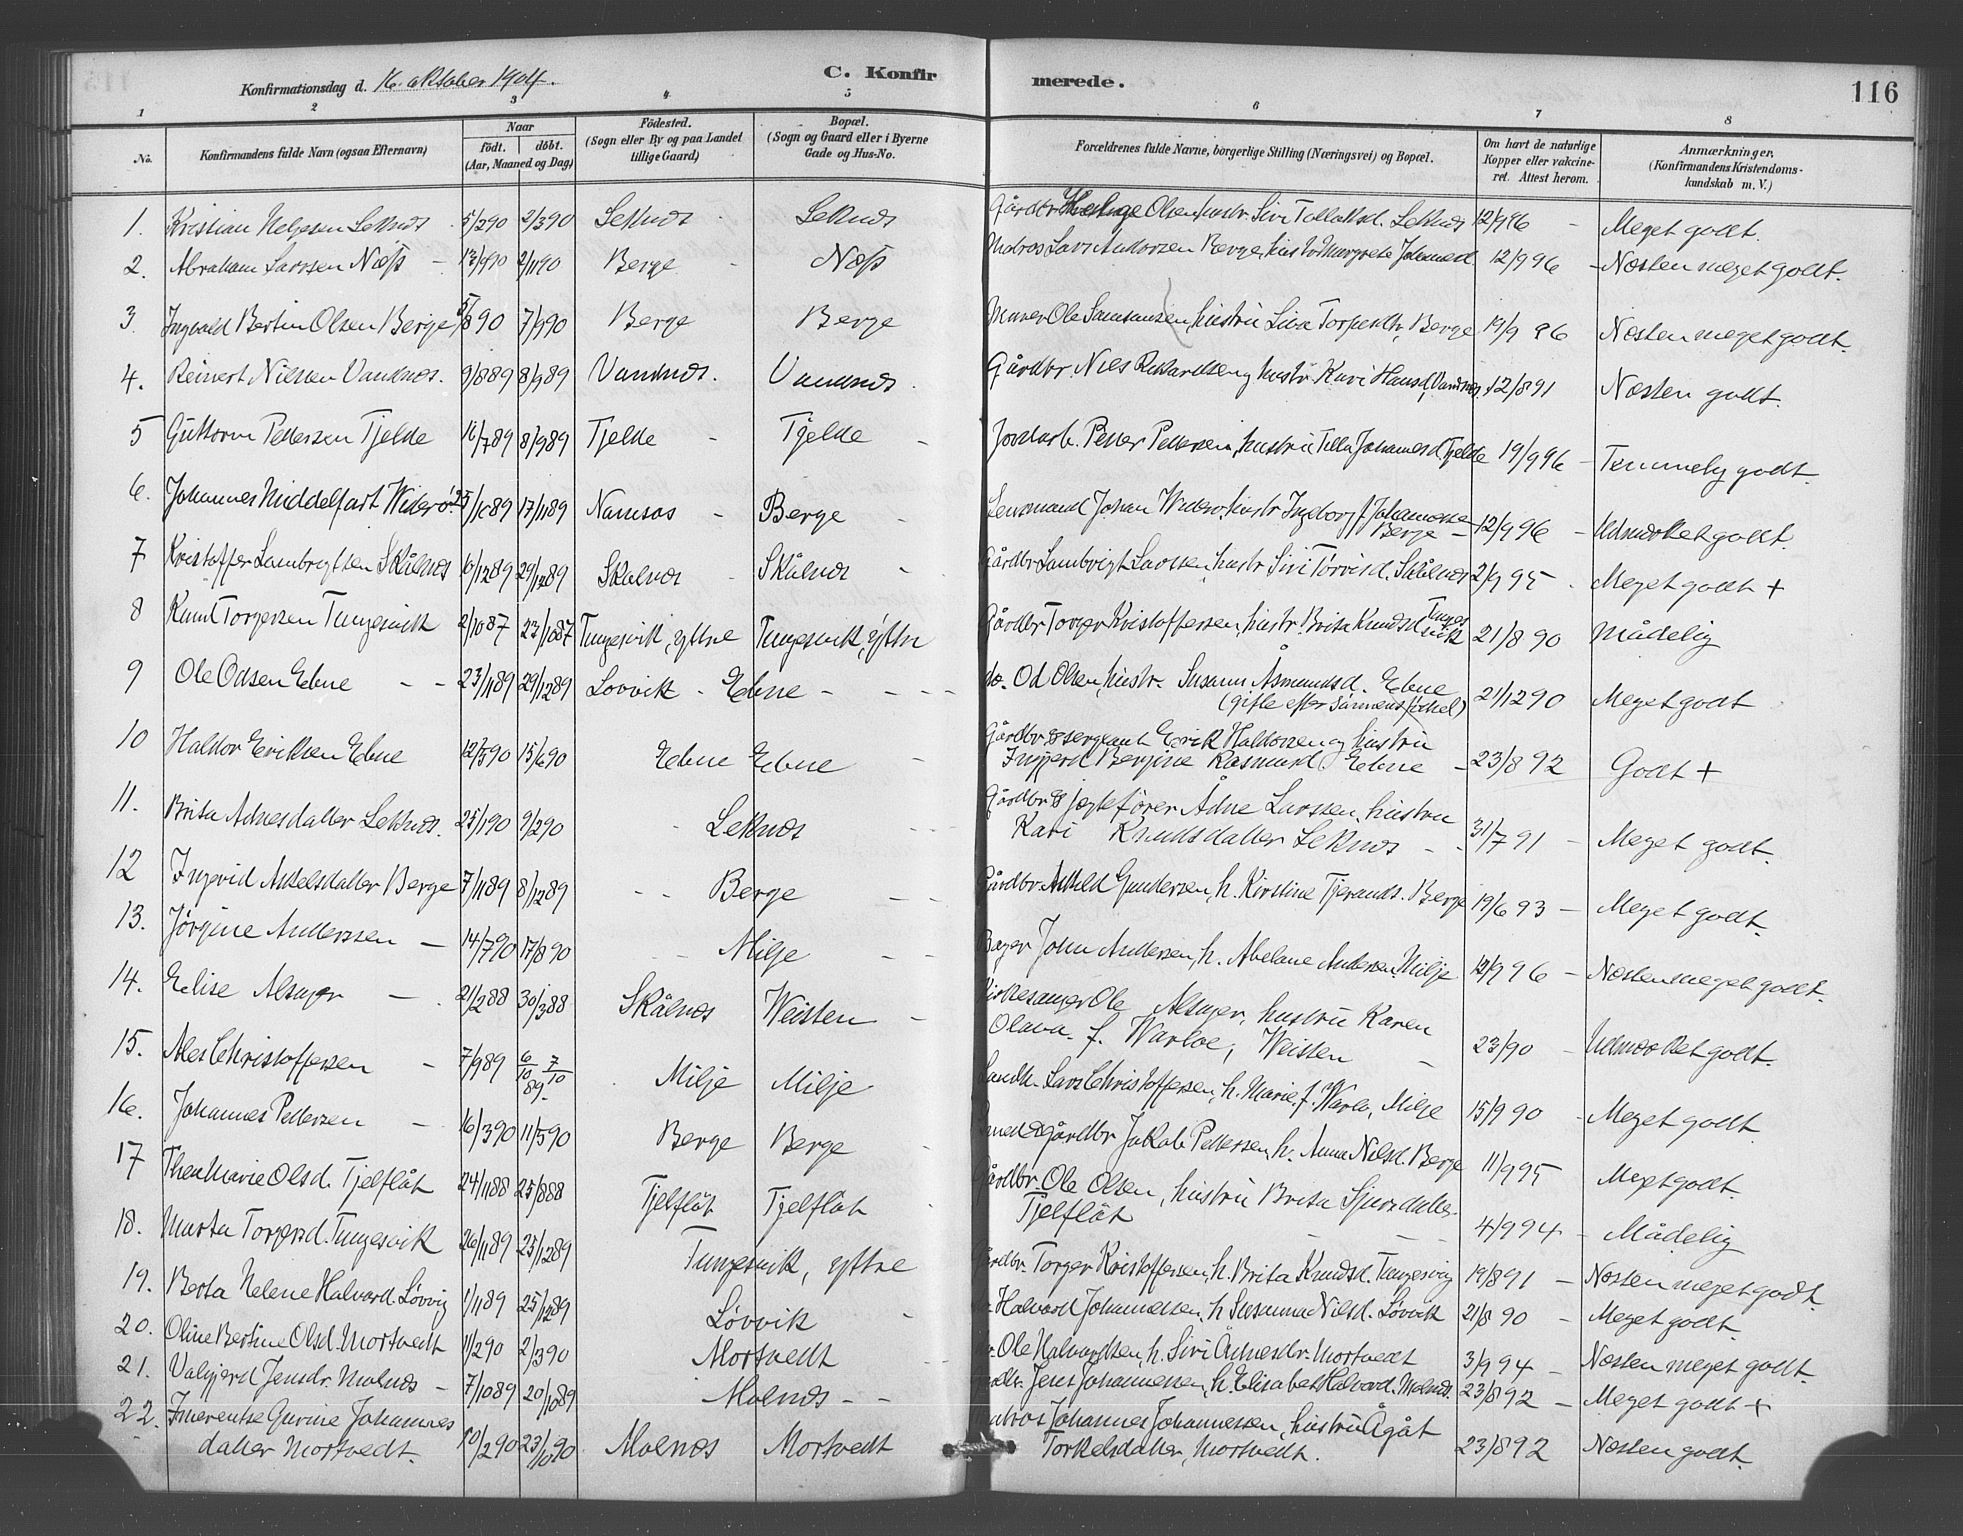 Konfirmationsdag d. 16. oktober 1904.
C. Konfirmerede.
116
1 2 3 4 5 6 7 8
No.
Konfirmandens fulde Navn (ogsaa Efternavn)
Naar
født. døbt.
(Aar, Maaned og Dag)
Fødested.
(Sogn eller By og paa Landet
tillige Gaard)
Bopæl.
(Sogn og Gaard eller i Byerne
Gade og Hus-No.
Forældrenes fulde Navne, borgerlige Stilling (Næringsvei) og Bopæl.
Om havt de naturlige
Kopper eller vakcine-
ret. Attest herom.
Anmærkninger.
(Konfirmandens Kristendoms-
kundskab m. V.)
1. Kristian Helgesen Leknes 5/2 90 2/3 90 Leknes Leknes Gårdbr. Helge Olsen, hustr. Siri Tollaksd. Leknes 12/9 96 Meget godt.
2. Abraham Larssen Næss 2/11 90 Berge Næss Lars Andersen Berge, hustr. Margrete Johannesd. 12/9 96 Næsten meget godt.
3. Ingvald Bertin Olsen Berge 5/8 90 7/9 90 Berge Berge Murer Ole Samsonsen, hustru Siva Berge 19/9 96 Næsten meget godt.
4. Reinert Nilsen Vandnes. 9/8 89 8/9 89 Vandnes. Vandnes Gårdbr. Nils Rikardsen og hustr. Kari Hansd. Vandnes 12/8 91 Næsten godt.
5 Guttorm Pettersen Tjelde 16/7 89 8/9 89 Tjelde Tjelde Jordarb. Petter Pettersen, hustru Johannesd. Tjelde 19/9 96 Temmelig godt.
6. Johannes Middelfart Widerö 17/11 89 Namsos Berge Lensmand Johan Widerö, hustr. Ingeborg f. Johannessen
Berge 12/9 96 Udmærket godt.
7 Kristoffer Lambrigtsen Skålnes 6/12 89 29/12 89 Skålnes Skålnes Gårdbr. Lambrigt Larssen, hustr. Siri Skålnes 2/9 95 Meget godt +
8 Knut Torgersen Tungesvik 2/10 87 23/10 87 Tungesvik, yttre Tungesvik, yttre Gårdbr. Torger Kristoffersen, hustr. Brita Knudsd. Tunges
vik 21/8 90 Mådelig
9 Ole Odsen Ebne 23/11 89 29/12 89 Lovvik Ebne do. Od Olsen, hustr. Susanna Åsmundsd. Ebne
(gifte efter sönnens födsel) 21/12 90 Meget godt
10 Haldor Eriksen Ebne 12/5 90 15/6 90 Ebne Ebne Gårdbr. & sergeant Erik Haldorsen og hustru
Ingjerd Bergine Rasmusd. Ebne 23/8 92 Godt +
11. Brita Adnesdatter Leknes. 25/1 90 9/2 90 Leknes Gårdbr. & jægtefører Ådne Larssen, hustru
Kari Knudsdatter Leknes 31/7 91 Meget godt.
12 Ingvid Askelsdatter Berge 7/11 89 8/12 89 Berge Gårdbr. Askild Gundersen, h. Kirstine Tjerands. Berge 19/6 93 Meget godt.
13. Jørgine Anderssen 14/7 90 17/8 90 Milje Bager John Anderssen, h. Abelane Andersen, Milje 12/9 96 Næsten meget godt.
14. Elise Alsager 21/2 88 30/3 88 Skålnes Weisten Kirkesanger Ole Alsager, hustru Karen
Olava f. Warloe, Weisten 23/90 Udmærket godt.
15. Ales Christoffersen 7/9 89 6/10 7/10 89. Milje Milje Landh. Lars Christoffersen, h. Marie f. Warlo, Milje 15/9 90 Meget godt.
16. Johannes Pettersen 16/3 90 11/5 90 Berge Berge Smed & gårdbr. Jakob Pettersen, h. Anna Nilsd. Berge 11/9 95 Meget godt.
17 Thea Marie Olsd. Tjelflåt 24/11 88 25/8 88 Tjelflåt Tjelflåt Gårdbr. Ole Olsen, hustru Brita Sjursdatter
Tjelflåt 4/9 94 Mådelig
18. Marta Torgersd. Tungesvik 26/11 89 25/12 89 Tungesvik, yttre Gårdbr. Torger Kristoffersen, h. Brita Knudsd. Tungesvig 19/8 91 Næsten meget godt.
19. Berta Helene Halvard. Løvvig 1/11 89 25/12 89 Løvvik Halvard Johannessen, h. Susanna Nilsd. Løvvik 21/8 90 Meget godt.
20. Oline Bertine Olsd. Mortvedt 11/2 90 2/3 90 Mortvedt Ole Halvardsen, h. Siri Ådnesdr. Mortvedt 3/9 94 Næsten meget godt.
21. Valgjerd Jensdr. Molnes 7/10 89 20/10 89 Molnes Jens Johannessen, h. Elisabet Halvard. Molnes. 23/8 92 Meget godt +
22. Imerentse Gurine Johannes
datter Mortvedt. 10/2 90 23/10 90 Molnes Mortvedt Johannes Johannessen, hustru Ågåt
Torkelsdatter, Mortvedt. 23/8 92 Næsten godt.